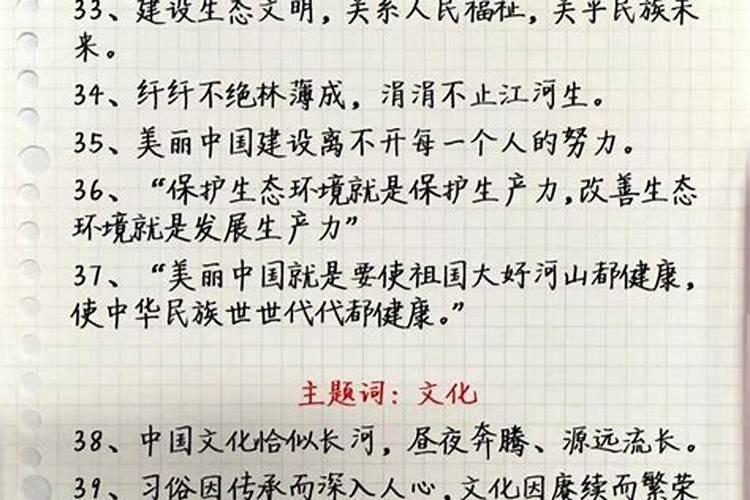 33、建设生态文明，关系人民福祉，关乎民族未
来。
34、纤纤不绝林薄成，涓涓不止江河生。
35、美丽中国建设离不开每一个人的努力。
36、“保护生态环境就是保护生产力,改善生态
环境就是发展生产力”
37、“美丽中国就是要使祖国大好河山都健康，
使中华民族世世代代都健康。”
主题词：文化
38、中国文化恰似长河，昼夜奔腾、源远流长。
39、习俗因传承而深入人心,文化因赓续而繁荣